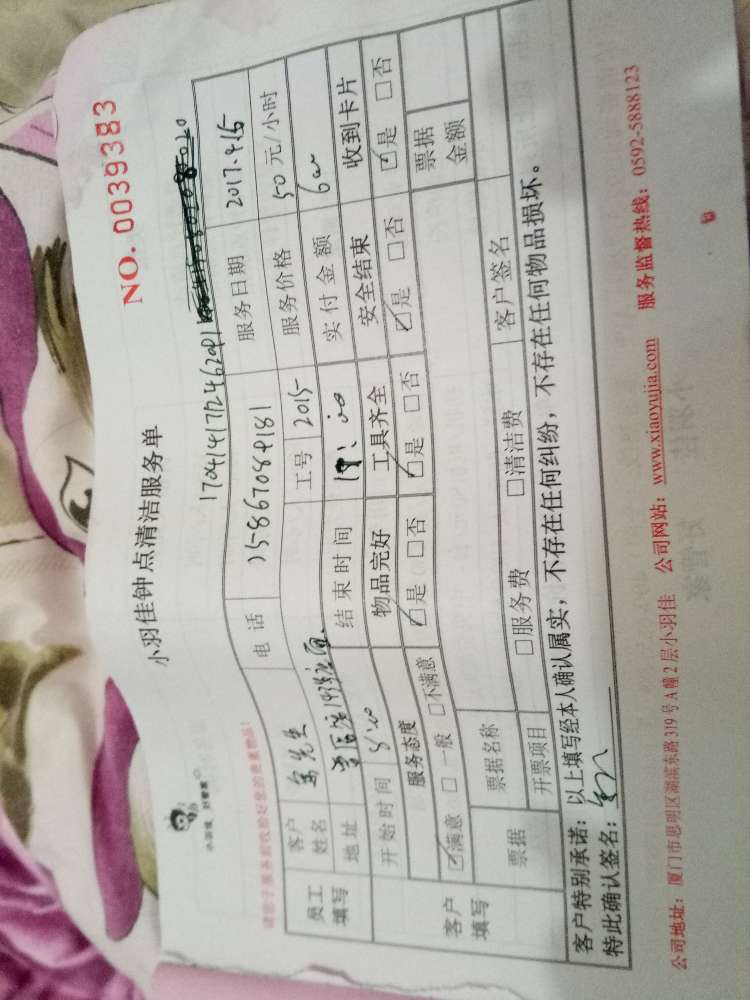 小羽佳钟点清洁服务单
NO. 0039383
小羽佳 好管家
电话 15867084181 服务日期 2017.4.15
员工填写 客户姓名 先生 工号 2015 服务价格 50元/小时
地址 实付金额
开始时间 结束时间 收到卡片
服务态度 物品完好 工具齐全 安全结束 ☑是 □否
客户填写 ☑满意 □一般 □不满意 ☑是 □否 ☑是 □否 ☑是 □否
票据 票据名称 □服务费 □清洁费 客户签名 票据金额
开票项目
客户特别承诺：以上填写经本人确认属实，不存在任何纠纷，不存在任何物品损坏。
特此确认签名：
公司地址：厦门市思明区湖滨东路319号A幢2层小羽佳 公司网站：www.xiaoyujia.com 服务监督热线：0592-5888123